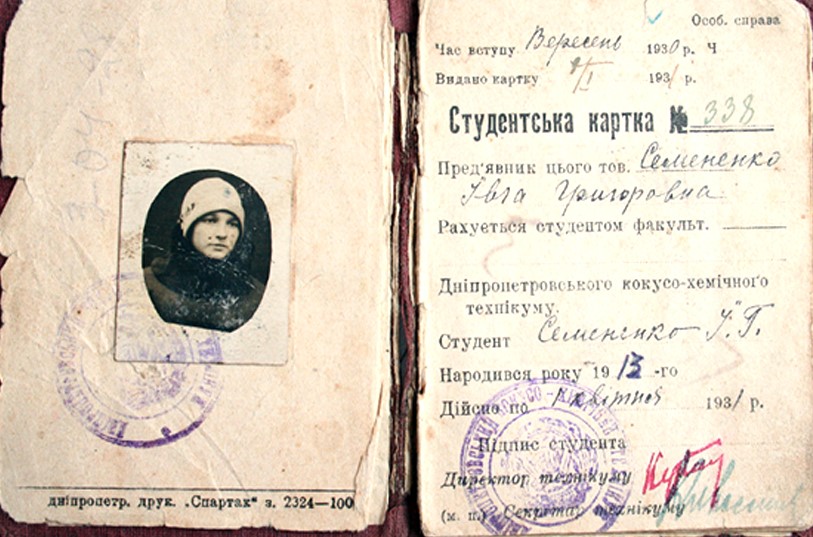 дніпропетр. друк. „Спартак“ з. 2324—100
Особ. справа
Час вступу Вересень 1930 р. Ч
Видано картку 1/I 1931 р.
Студентська картка № 338
Пред'явник цього тов. Семененко
Івга Григоровна
Рахується студентом факульт.
Дніпропетровського кокусо-хемічного
технікуму.
Студент Семененко І. Г.
Народився року 1913 -го
Дійсно по 1 квітня 1931 р.
Підпис студента
Директор технікуму
(м. п.) Секрітар технікуму